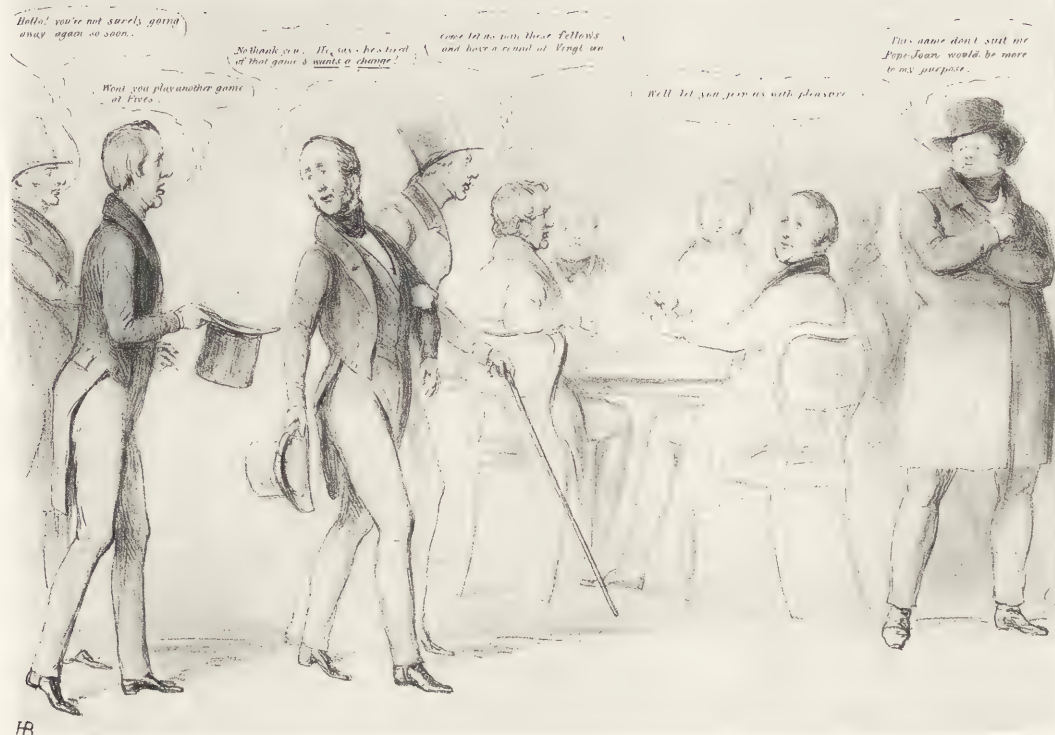 Hollo! you're not surely going
away again so soon.
Wont you play another game
at Fives.
No thank you. He says he's tired
of that game & wants a change!
come let us join these fellows
and have a round at Vingt un
We'll let you join us with pleasure
This game don't suit me
Pope-Joan would be more
to my purpose.
HB